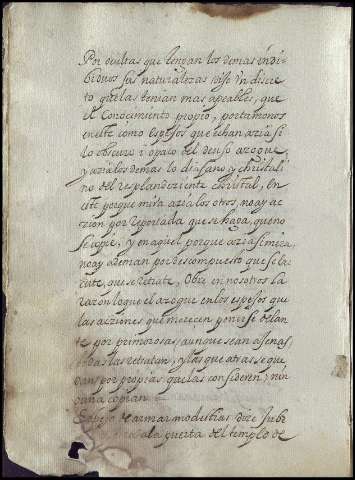 Por ocultas que tengan los demas indi-
biduos sus naturalezas dijo Un discre
to que las tenian mas apeables, que
el Conocimiento propio, portamonos
en este como Espejos que echan azia si
lo obscuro i opaco del denso azogue,
y azia los demas lo diafano y christali
no del resplandeziente christal, en
este porque mira azia los otros, no ay ac
zion por reportada que se haga, que no
se copie, y en aquel porque azia si mira,
no ay ademan por descompuesto que se
cute, que se retrate, Obra en nosotros la
razon lo que el azogue en los espejos que
las acziones que merecen ponerse delan
te por primorosas aunque sean ajenas
las retratan, y las que atras se que
dan por propias que las consideren, nin
guna copian.
Espejo de armar modestias dize
a la puerta del templo de